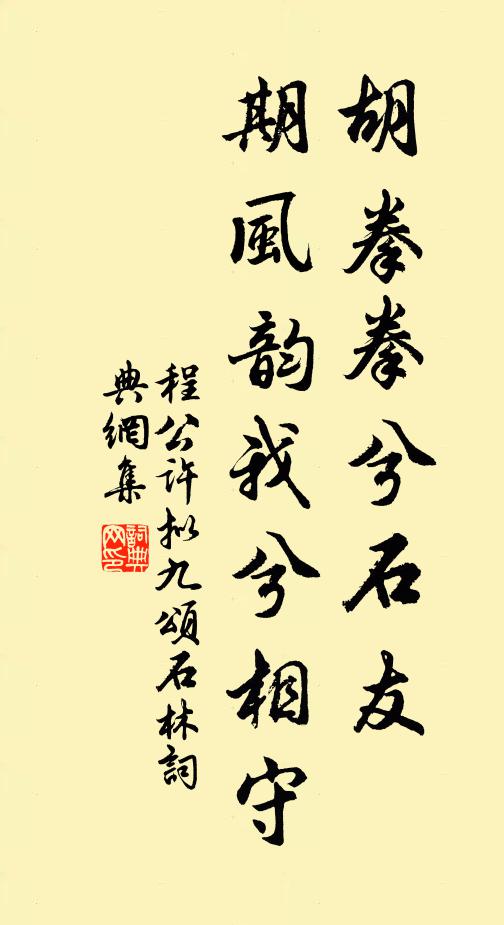 胡拳拳兮石友
期風韵我兮相守
程公许拟九頌石林詞
典網集
詞典网印